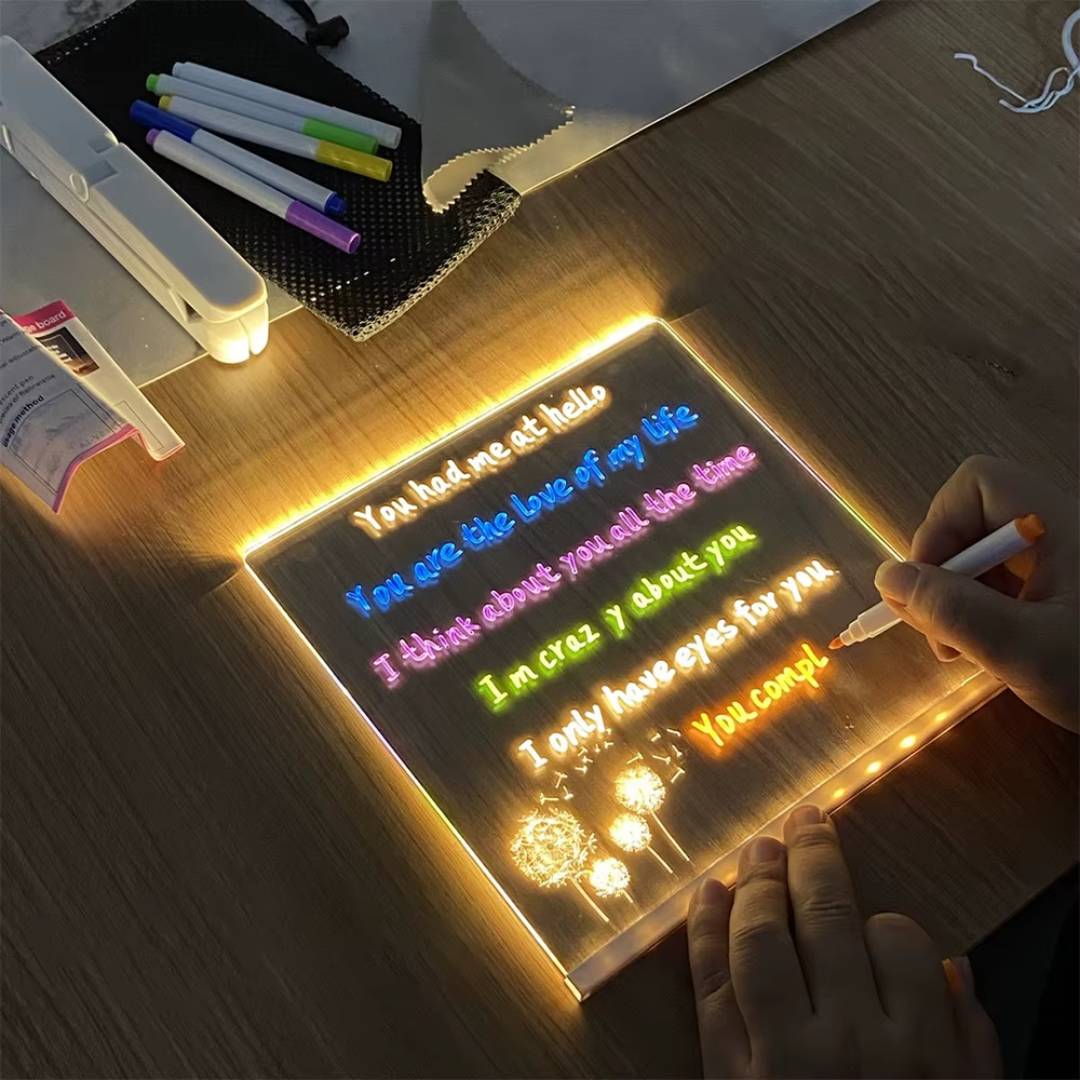 You had me at hello
You are the love of my life
I think about you all the time
I m craz y about you
I only have eyes for you.
You compl
board
usage method